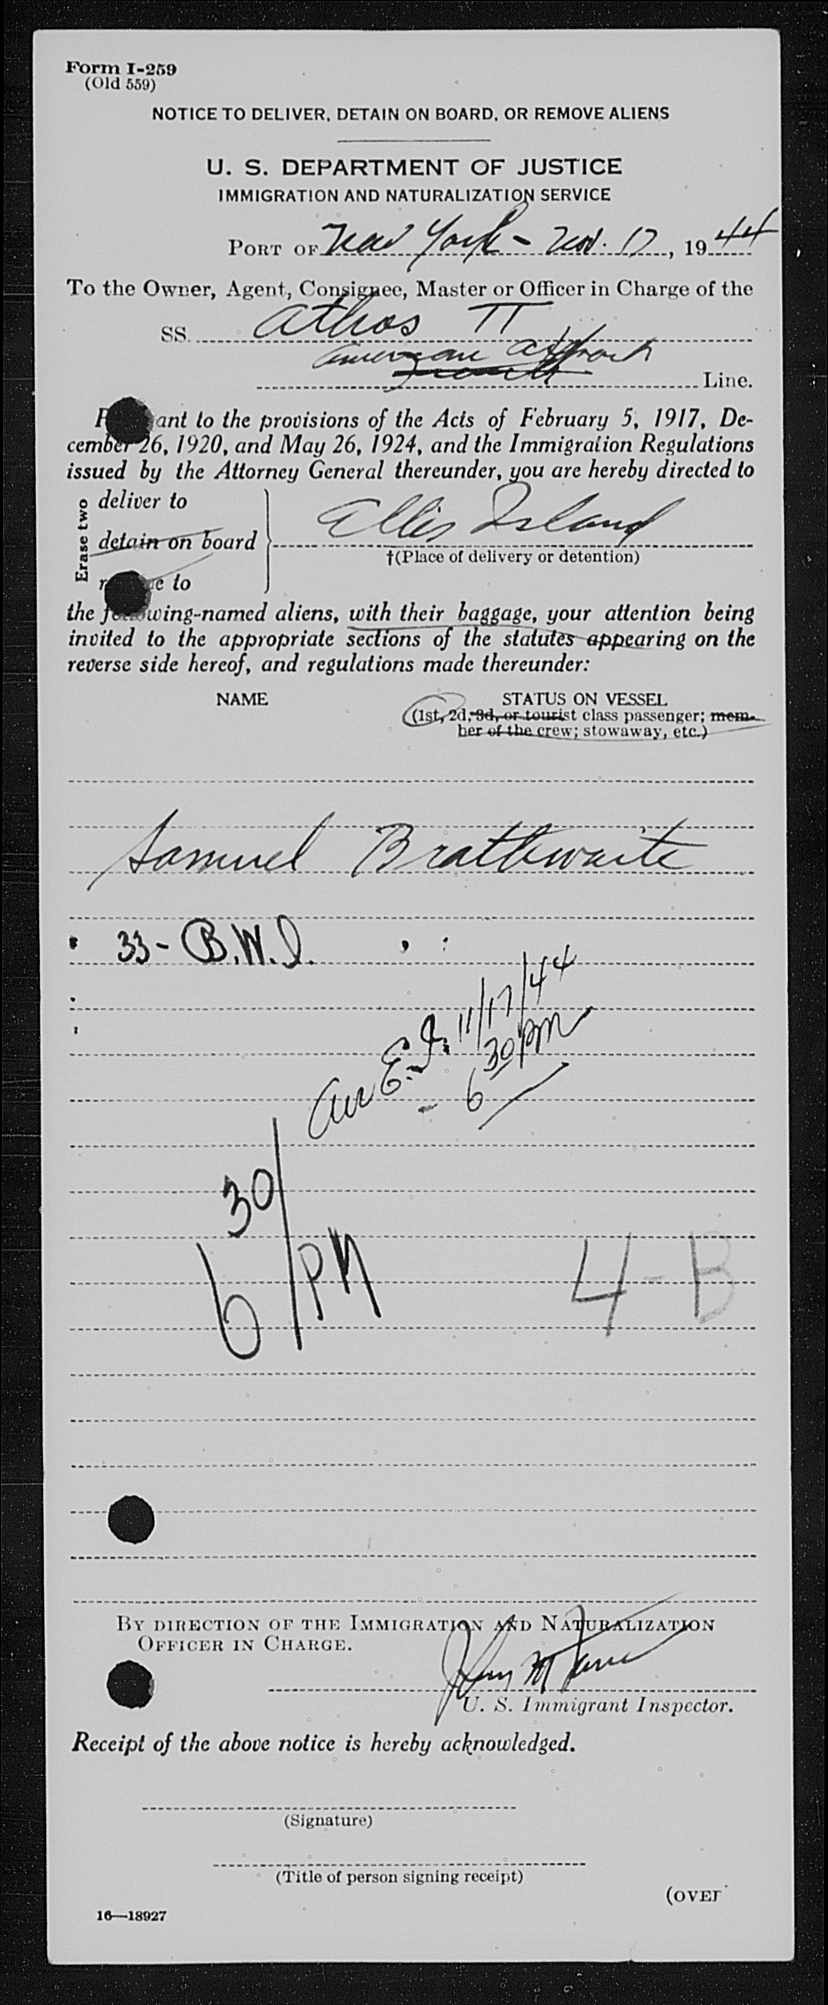 Form I-259
(Old 559)
NOTICE TO DELIVER, DETAIN ON BOARD, OR REMOVE ALIENS
U. S. DEPARTMENT OF JUSTICE
IMMIGRATION AND NATURALIZATION SERVICE
PORT OF New York - Nov. 17, 1944
To the Owner, Agent, Consignee, Master or Officer in Charge of the
SS. Athos II
American Line.
ant to the provisions of the Acts of February 5, 1917, De-
cember 26, 1920, and May 26, 1924, and the Immigration Regulations
issued by the Attorney General thereunder, you are hereby directed to
Erase two
deliver to
detain on board
to
Ellis Island
†(Place of delivery or detention)
the following-named aliens, with their baggage, your attention being
invited to the appropriate sections of the statutes appearing on the
reverse side hereof, and regulations made thereunder:
NAME STATUS ON VESSEL
(1st, 2d, 3d, or tourist class passenger; mem-
ber of the crew; stowaway, etc.)
Samuel Brathwaite
33 - B.W.I.
Arr E.I. 11/17/44
- 6 30 PM
6 30/PM
4-B
BY DIRECTION OF THE IMMIGRATION AND NATURALIZATION
OFFICER IN CHARGE.
John M
U. S. Immigrant Inspector.
Receipt of the above notice is hereby acknowledged.
(Signature)
(Title of person signing receipt)
(OVER
16—18927